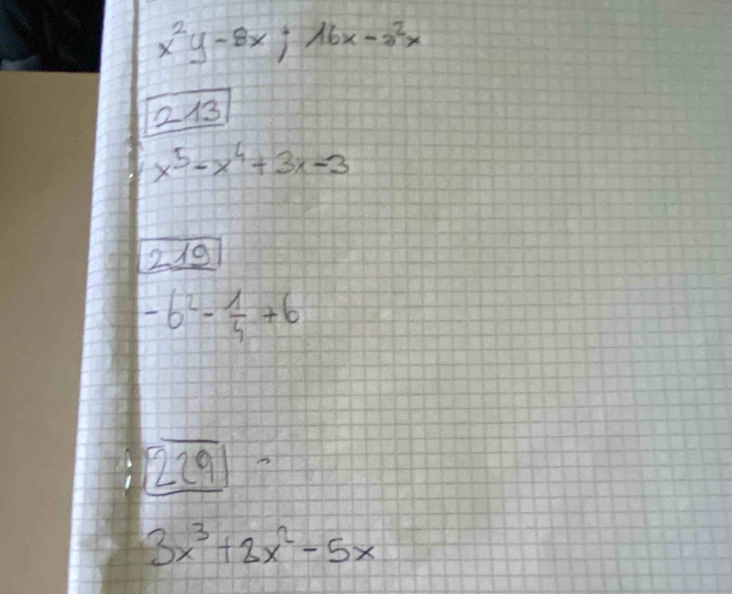 x²y - 8x; 16x - a²x
213
x⁵ - x⁴ + 3x - 3
219
-b² - 1/4 + b
229
3x³ + 8x² - 5x